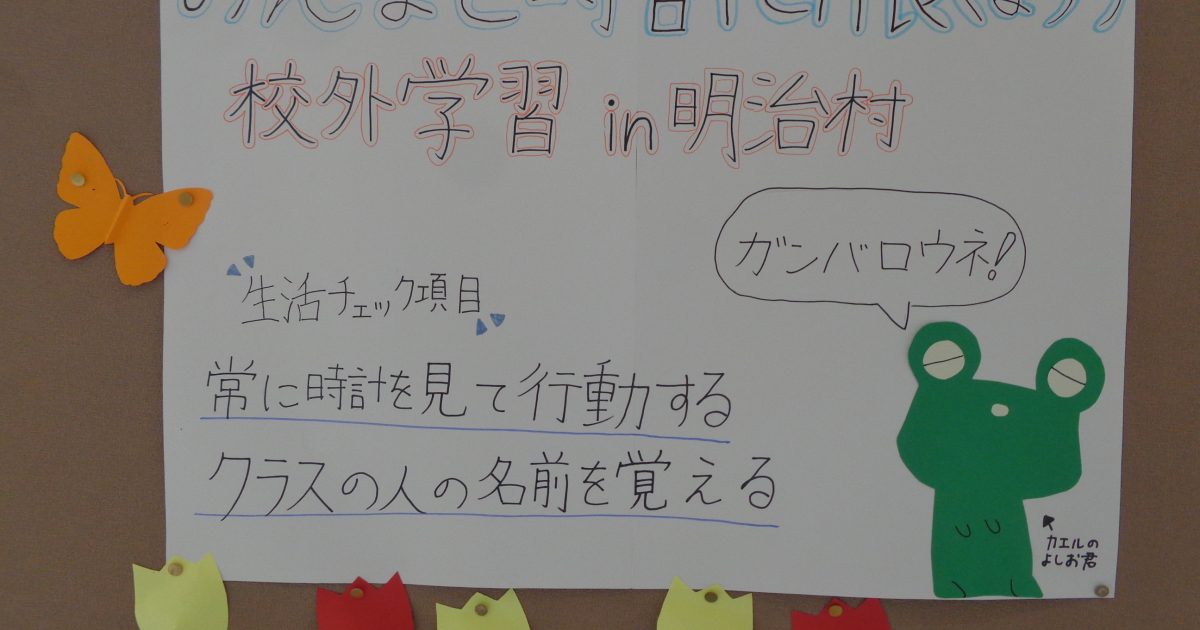 校外学習 in 明治村
ガンバロウネ!
生活チェック項目
常に時計を見て行動する
クラスの人の名前を覚える
カエルの
よしお君